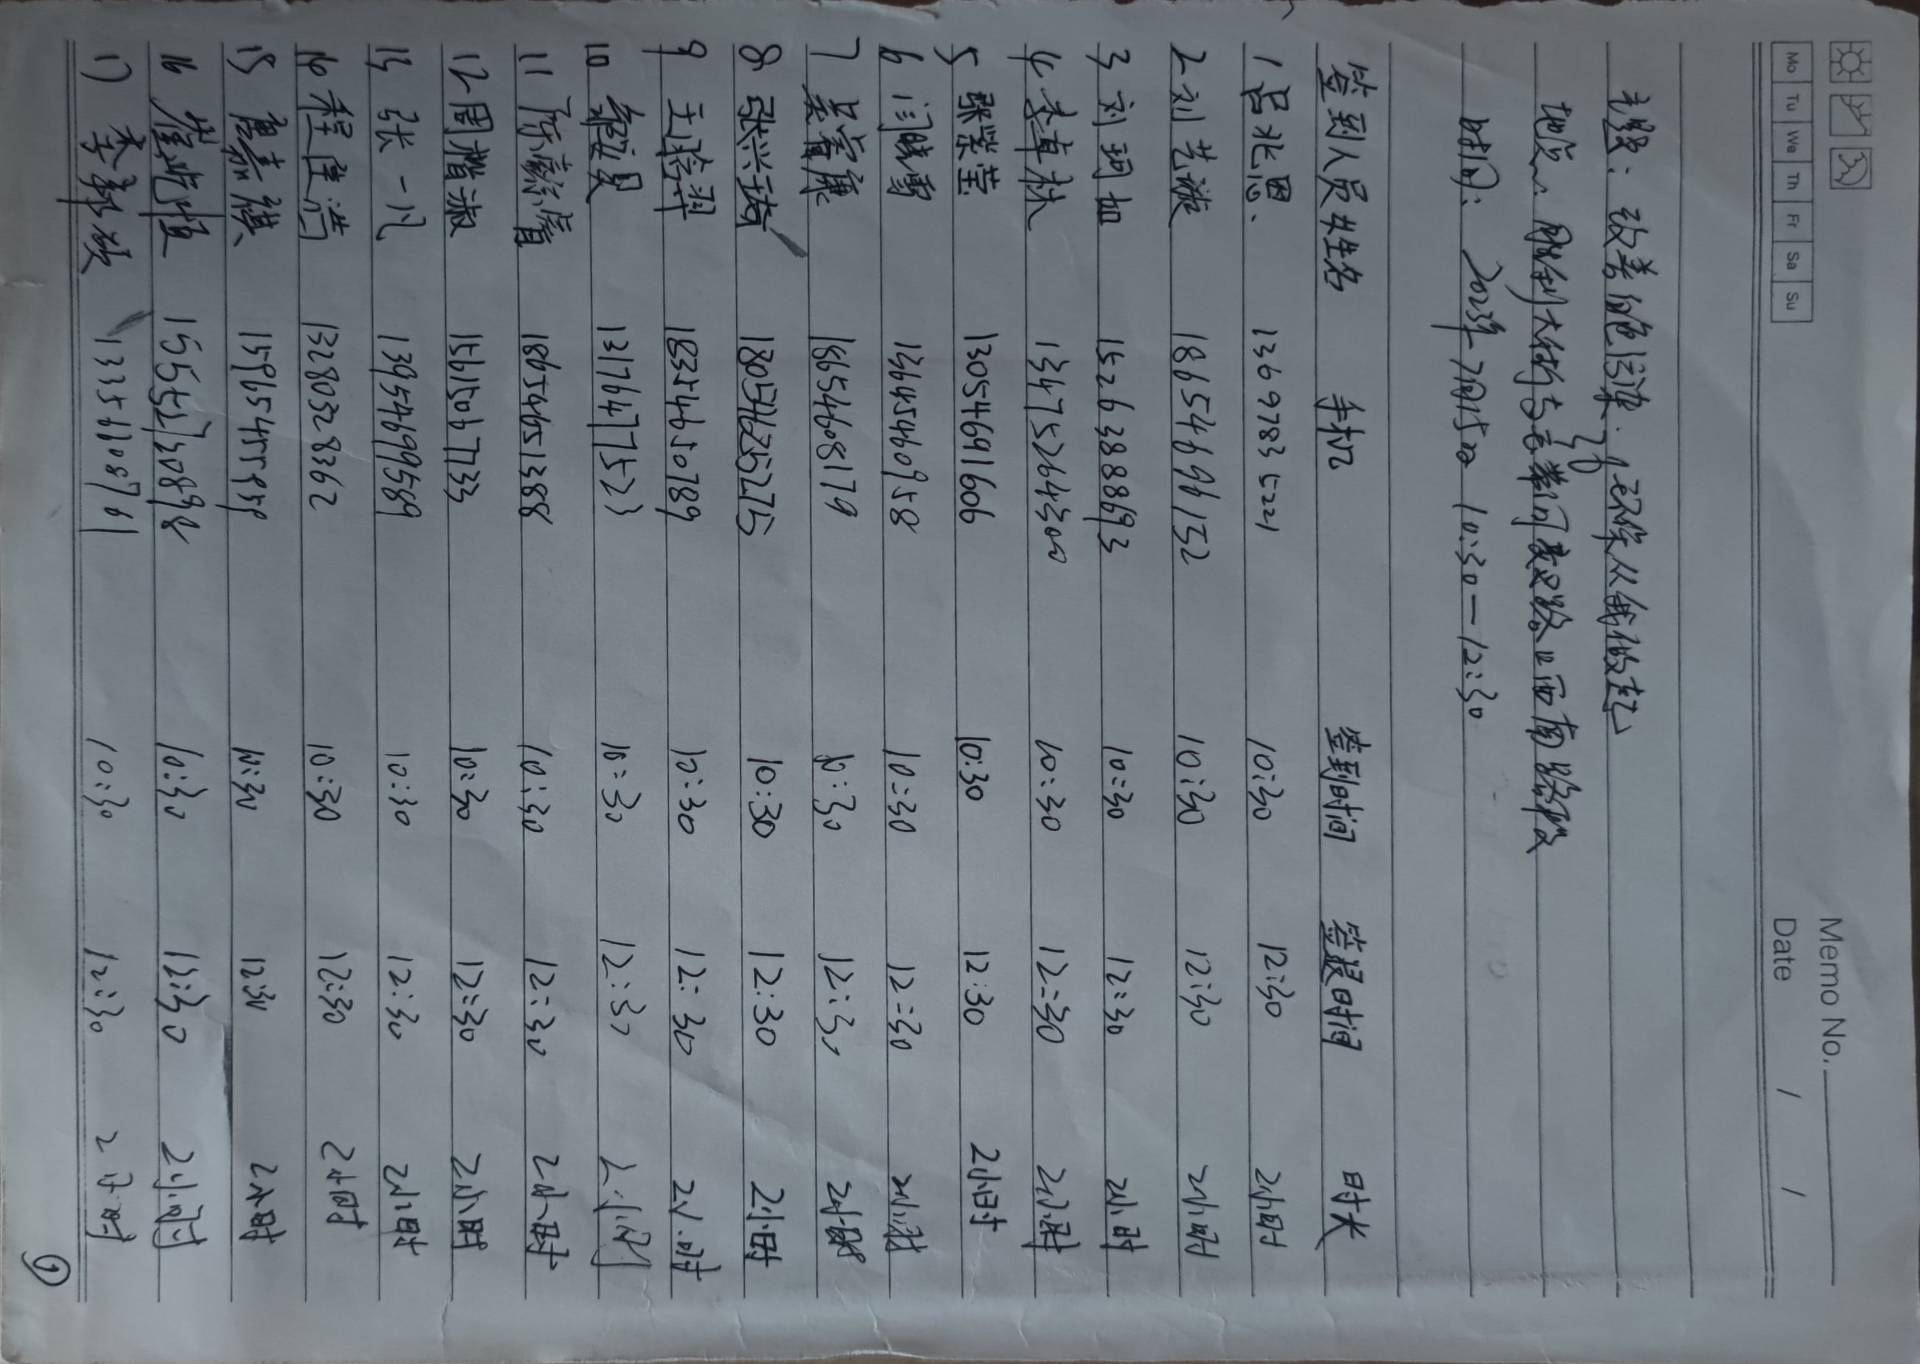 Memo No.
Mo Tu We Th Fr Sa Su
Date / /
主题：改善白色污染，环保从我做起
地点：胜利大街与 路口西南路段
时间：2023年7月15日 10:30—12:30
签到人员姓名 手机 签到时间 签退时间 时长
1 吕兆恩 13697835221 10:30 12:30 2小时
2 刘艺璇 18654696152 10:30 12:30 2小时
3 刘珂如 15263888693 10:30 12:30 2小时
4 李卓秋 13475264300 10:30 12:30 2小时
5 张荣莹 13054691606 10:30 12:30 2小时
6 闫晓雪 13645460958 10:30 12:30 2小时
7 康 18654608179 10:30 12:30 2小时
8 张兴琦 18054625275 10:30 12:30 2小时
9 王 羿 18354650789 10:30 12:30 2小时
10 13176477523 10:30 12:30 2小时
11 陈 18654651388 10:30 12:30 2小时
12 周 淑 15615067733 10:30 12:30 2小时
13 张一凡 13954699589 10:30 12:30 2小时
14 程 浩 13280328362 10:30 12:30 2小时
15 唐嘉祺 15965455858 10:30 12:30 2小时
16 崔 恒 15552730898 10:30 12:30 2小时
17 李 13354608761 10:30 12:30 2小时